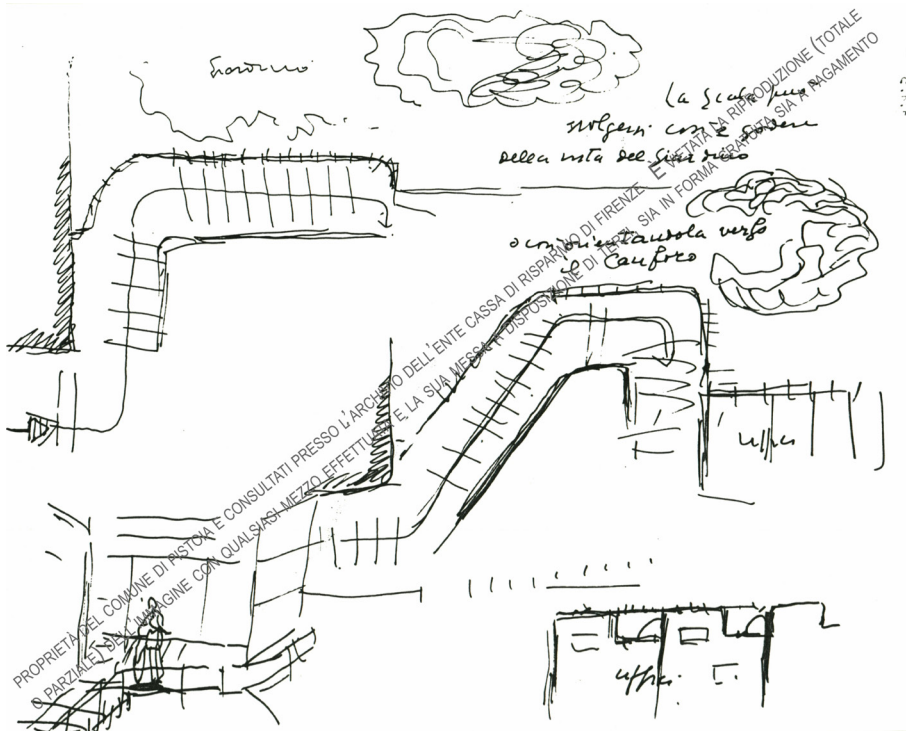 Giardino
La Scala può
svolgersi così e godere
della vista del giardino
o così orientandola verso
il Canforo
uffici
uffici
PROPRIETÀ DEL COMUNE DI PISTOIA E CONSULTATI PRESSO L'ARCHIVIO DELL'ENTE CASSA DI RISPARMIO DI FIRENZE. È VIETATA LA RIPRODUZIONE (TOTALE
O PARZIALE) DELL'IMMAGINE CON QUALSIASI MEZZO EFFETTUATA E LA SUA MESSA A DISPOSIZIONE DI TERZI, SIA IN FORMA GRATUITA SIA A PAGAMENTO